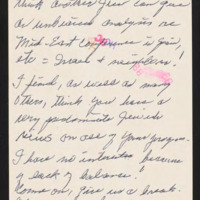 think another Jew can give
an unbiased analysis re
Mid-East
etc = Israel & neighbors!
I find, as well as many
others, think you have a
very predominate Jewish
on all of your program.
I have no interest because
of lack of balance!
Come on, give us a break.